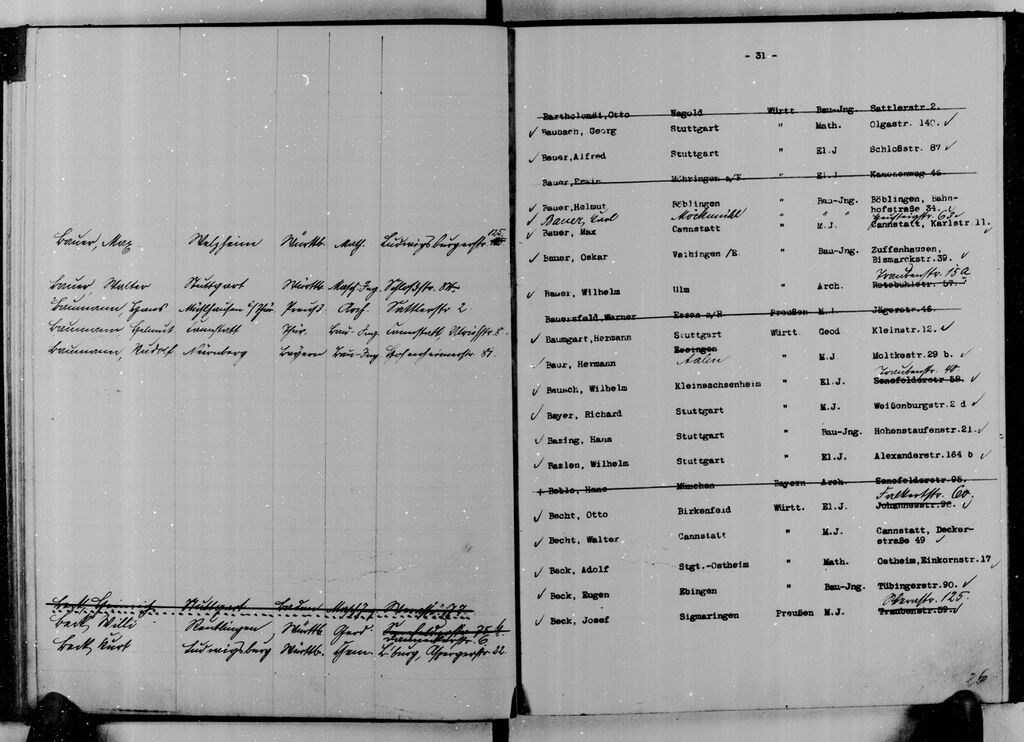 Bauer, Max Welzheim Württb. Math. Ludwigsburgerstr. 125.
Bauer, Walter Stuttgart Württb. Masch.Ing. Schloßstr. 84.
Baumann, Hans Mühlhausen i/Thür. Preuß. Arch. Sattlerstr. 2
Baumann, Helmut Cannstatt Bau-Ing. Cannstatt, 8.
Baumann, Rudolf Nürnberg Bayern Bau-Ing. 84.
Beck, Heinrich Stuttgart Baden
Beck Willi Reutlingen Württb. Geod.
Beck Kurt Ludwigsburg Württb. Chem. L'burg, Aspergerstr. 22.
- 31 -
Bartholomäi,Otto Nagold Württ. Bau-Jng. Sattlerstr 2.
✓ Baubach, Georg Stuttgart " Math. Olgastr. 140. ✓
✓ Bauer,Alfred Stuttgart " El.J Schloßstr. 87 ✓
Bauer,Erwin Möhringen a/F. " El.J Kanonenweg 46.
✓ Bauer,Helmut Böblingen " Bau-Jng. Böblingen, Bahn-
hofstraße 34. ✓
✓ Bauer, Karl Möckmühl " " "
✓ Bauer, Max Cannstatt " M.J. Cannstatt, Karlstr.11. ✓
✓ Bauer, Oskar Vaihingen /E. " Bau-Jng. Zuffenhausen,
Bismarckstr.39. ✓
Traubenstr. 15a
✓ Bauer, Wilhelm Ulm " Arch. Rotebühlstr. 57. ✓
Bauersfeld,Werner Essen a/R Preußen M.J. Jägerstr.46.
✓ Baumgart,Hermann Stuttgart Württ. Geod Kleinstr.12. ✓
Essingen
✓ Baur, Hermann Aalen " M.J. Moltkestr.29 b. ✓
Traubenstr. 40
✓ Bausch, Wilhelm Kleinsachsenheim " El.J. Senefelderstr 58. ✓
✓ Bayer, Richard Stuttgart " M.J. Weißenburgstr.2 d ✓
✓ Bazing, Hans Stuttgart " Bau-Jng. Hohenstaufenstr.21. ✓
✓ Bazlen, Wilhelm Stuttgart " El.J. Alexanderstr.164 b ✓
+ Beblo, Hans München Bayern Arch. Senefelderstr.95.
Falkertstr. 60.
✓ Becht, Otto Birkenfeld Württ. El.J. Johannesstr.96. ✓
✓ Becht, Walter Cannstatt " M.J. Cannstatt, Decker-
straße 49 ✓
✓ Beck, Adolf Stgt.-Ostheim " Math. Ostheim,Einkornstr.17 ✓
✓ Beck, Eugen Ebingen " Bau-Jng. Tübingerstr.90. ✓
125.
✓ Beck, Josef Sigmaringen Preußen M.J. Traubenstr.59. ✓
26